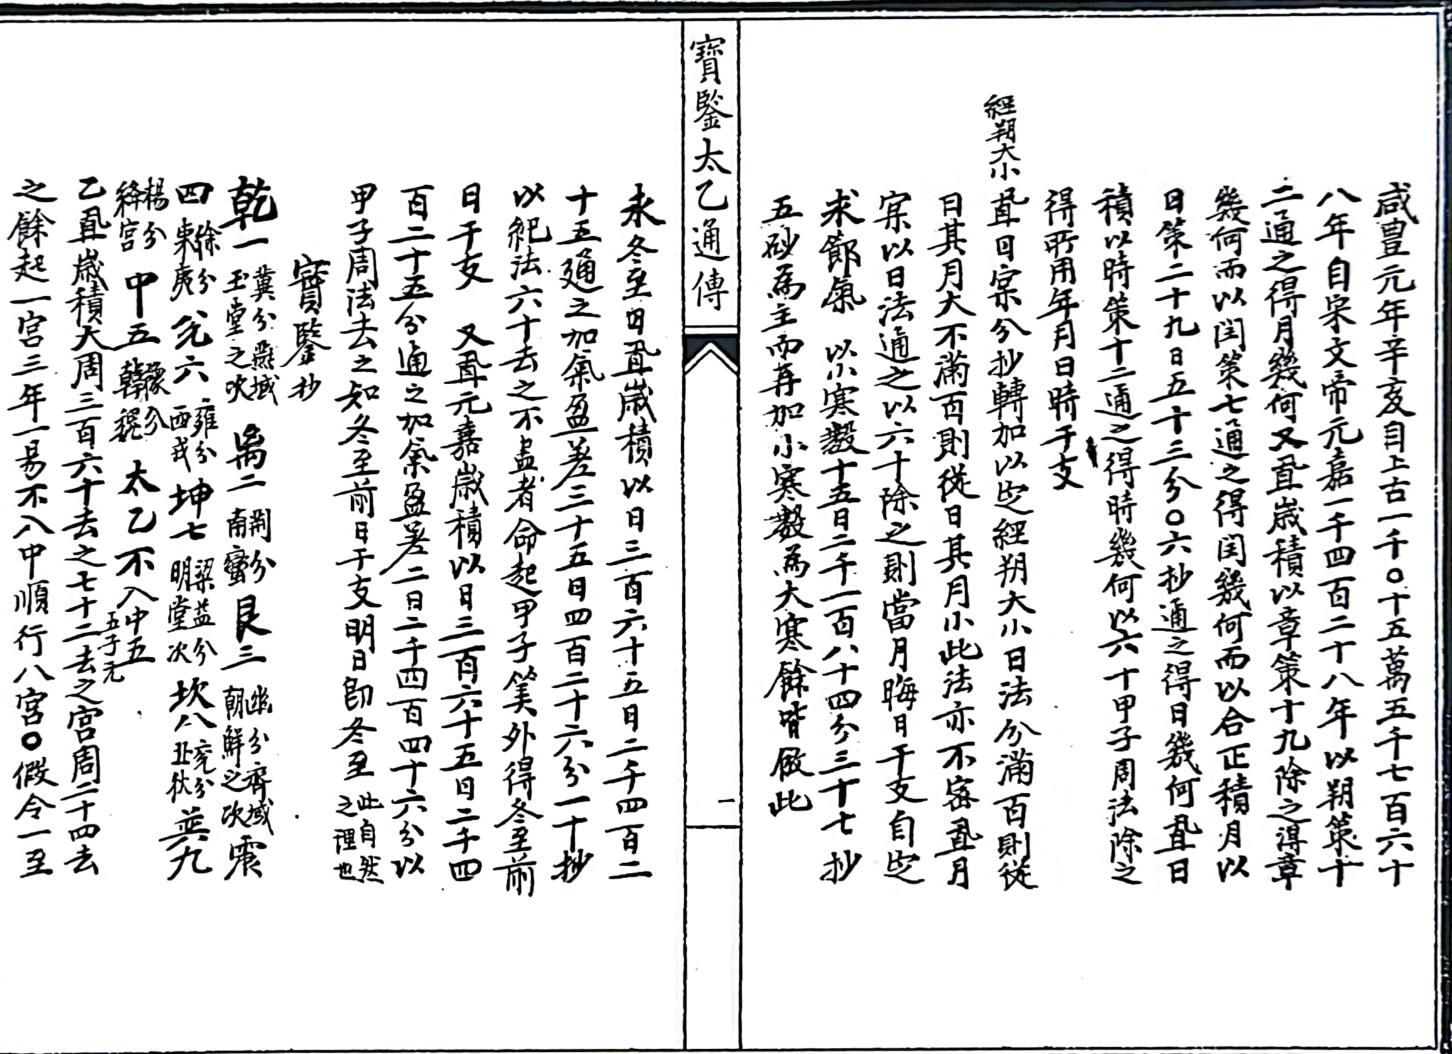 咸豐元年辛亥自上古一千〇十五萬五千七百六十
八年自宋文帝元嘉一千四百二十八年以朔策十
二通之得月幾何又置歲積以章策十九除之得章
幾何而以閏策七通之得閏幾何而以合正積月以
日策二十九日五十三分〇六抄通之得日幾何置日
積以時策十二通之得時幾何以六十甲子周法除之
得所用年月日時干支
經朔大小置日宗分抄轉加以定經朔大小日法分滿百則從
日其月大不滿百則從日其月小此法亦不密置月
宗以日法通之以六十除之則當月晦日干支自定
求節氣 以小寒數十五日二千一百八十四分三十七抄
五砂為主而再加小寒數為大寒餘皆倣此
寶鑒太乙通傳
一
求冬至日置歲積以日三百六十五日二千四百二
十五通之加氣盈差三十五日四百二十六分一十抄
以紀法六十去之不盡者命起甲子筭外得冬至前
日干支 又置元嘉歲積以日三百六十五日二千四
百二十五分通之加氣盈差二日二千四百四十六分以
甲子周法去之知冬至前日干支明日即冬至此自然之理也
寶鑒抄
乾一冀分燕域玉堂之次 离二荆分南蠻 艮三幽分齊域朝鮮之次 震
四徐分東夷 兌六雍分西戎 坤七梁益分明堂次 坎八兗分北狄 巽九
楊分絳宮 中五豫分韓魏 太乙不入中五五子元
乙置歲積大周三百六十去之七十二去之宮周二十四去
之餘起一宮三年一易不入中順行八宮〇假令一至